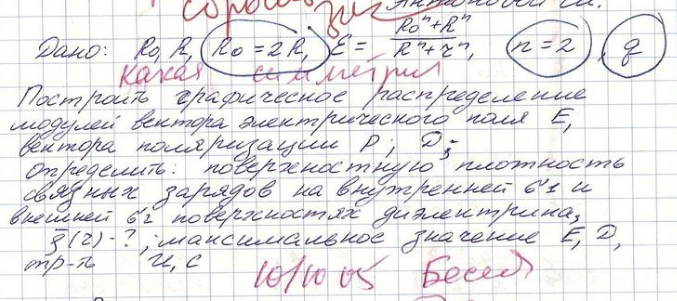 Дано: R₀, R, R₀ = 2R, ε = (R₀ⁿ + Rⁿ)/(Rⁿ + rⁿ), n = 2, q
Какая симметрия
Построить графическое распределение
модулей вектора электрического поля E,
вектора поляризации P; D;
определить: поверхностную плотность
связных зарядов на внутренней σ'1 и
внешней σ'2 поверхностях диэлектрика,
(r) - ?, максимальное значение E, D,
10/10 05